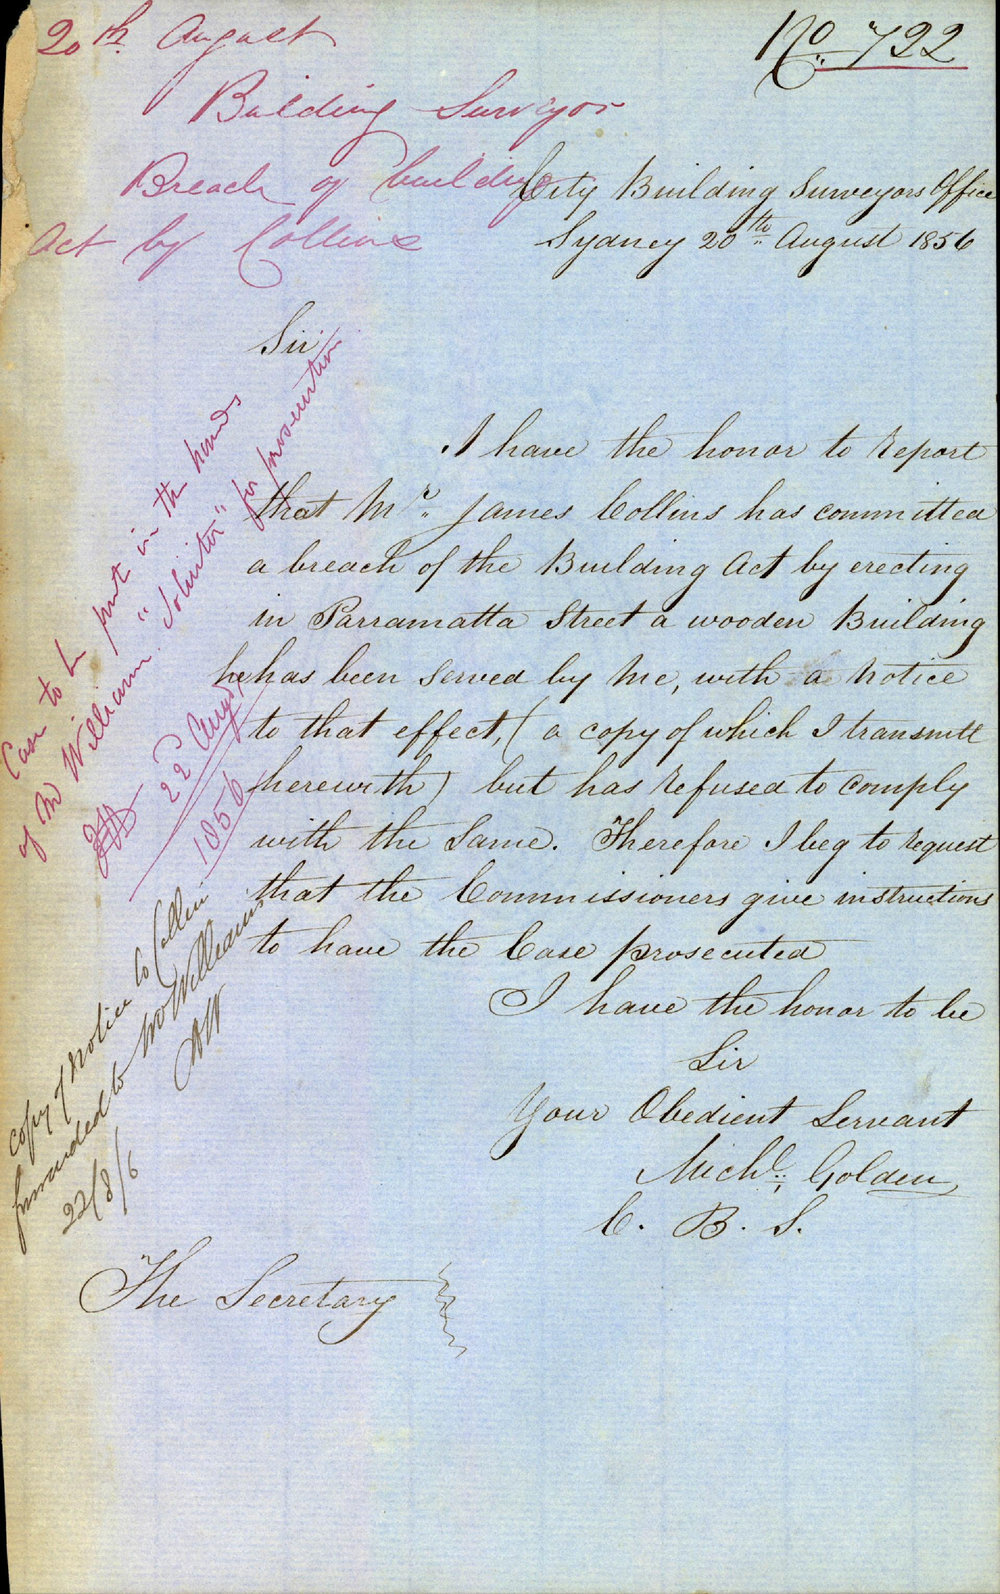 No 722
20th August
Building Surveyor
Breach of building
Act by Collins
City Building Surveyors Office
Sydney 20th August 1856
Sir
I have the honor to report
that Mr James Collins has committed
a breach of the Building Act by erecting
in Parramatta Street a wooden Building
he has been served by me, with a notice
to that effect, (a copy of which I transmit
herewith) but has refused to comply
with the same. Therefore I beg to request
that the Commissioners give instructions
to have the Case prosecuted
I have the honor to be
Sir
Your Obedient Servant
Michl Golden
C. B. S.
The Secretary
Case to be put in the hands
of Mr Williams "Solicitor" for prosecution
22d Augst
1856
Copy of Notice to Collins
forwarded to Mr Williams
22/8/6